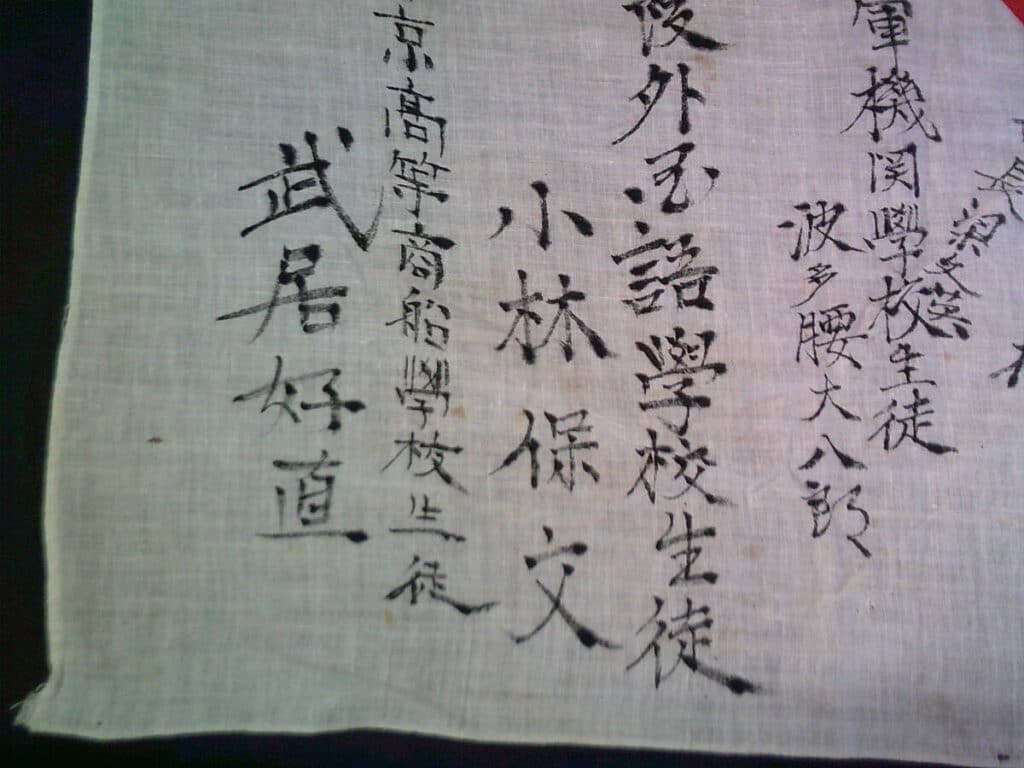 軍機関學校生徒
波多腰大八郎
外国語學校生徒
小林保文
京高等商船學校生徒
武居好直